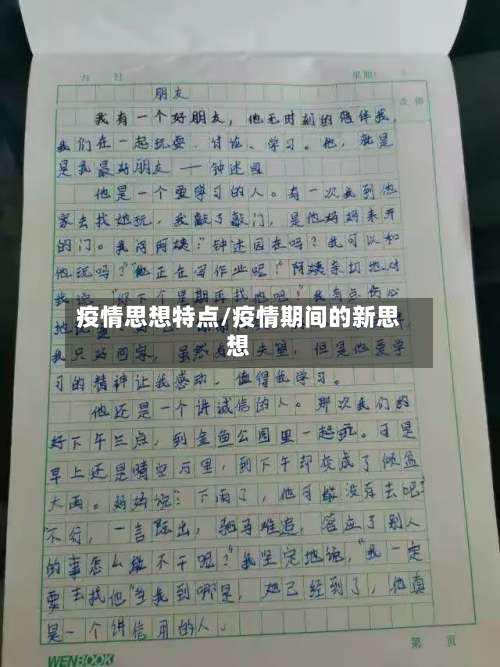 月 日 星期
朋友 改错
我有一个好朋友,他无时刻的陪伴我,
我们在一起玩耍、讨论、学习。他,就是
是我最好朋友——钟述园
他是一个爱学习的人。有一次我到他
家去找他玩,我敲了敲门,是他妈妈来开
的门。我问阿姨:"钟述园在吗?我可以和
他玩吗?"他正在写作业呢!"阿姨亲切地对
疫情思想特点/疫情期间的新思
想
我只好回家,虽然 失望,但是他爱学
习的精神让我感动,值得我学习。
他还是一个讲诚信的人。那次我们约
好下午三点,到金鱼公园里一起玩。可是
早上还是晴空万里,到下午却变成了倾盆
大雨。妈妈说:"下雨了,他可能没有去吧?"
"不行,一言既出,驷马难追,答应了别人
的事怎么能不干呢?"我坚定地说,"我一定
要去找他"当我到哪是,他已经到了,他真
是一个讲信用的人。
WENBOOK 第 页